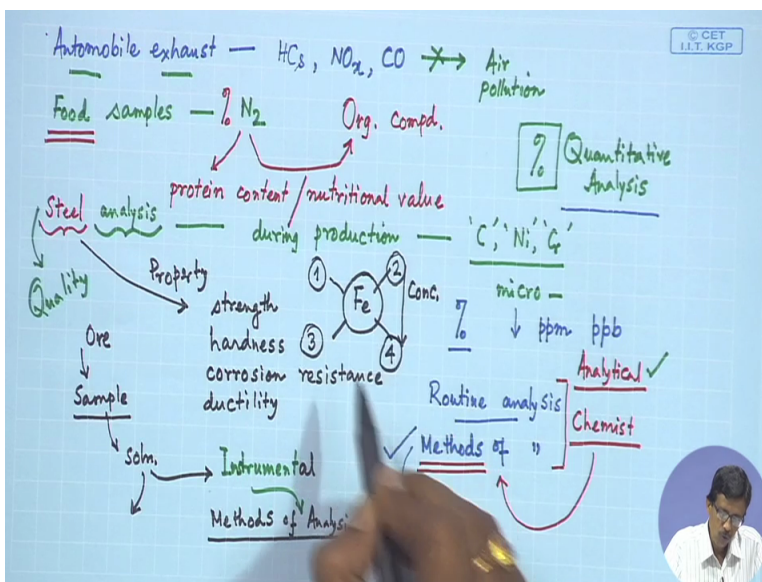 © CET
I.I.T. KGP
Automobile exhaust — HCs, NOx, CO → Air pollution
Food samples — % N2
Org. Compd.
% Quantitative Analysis
protein content / nutritional value
Steel analysis — during production — 'C', 'Ni', 'Cr'
micro –
Quality
Property
strength
hardness
corrosion resistance
ductility
1 2 Fe 3 4 Conc.
% ↓ ppm ppb
Ore
Sample
Soln.
Instrumental
Methods of Analysi
Routine analysis
Methods of "
Analytical ✓
Chemist